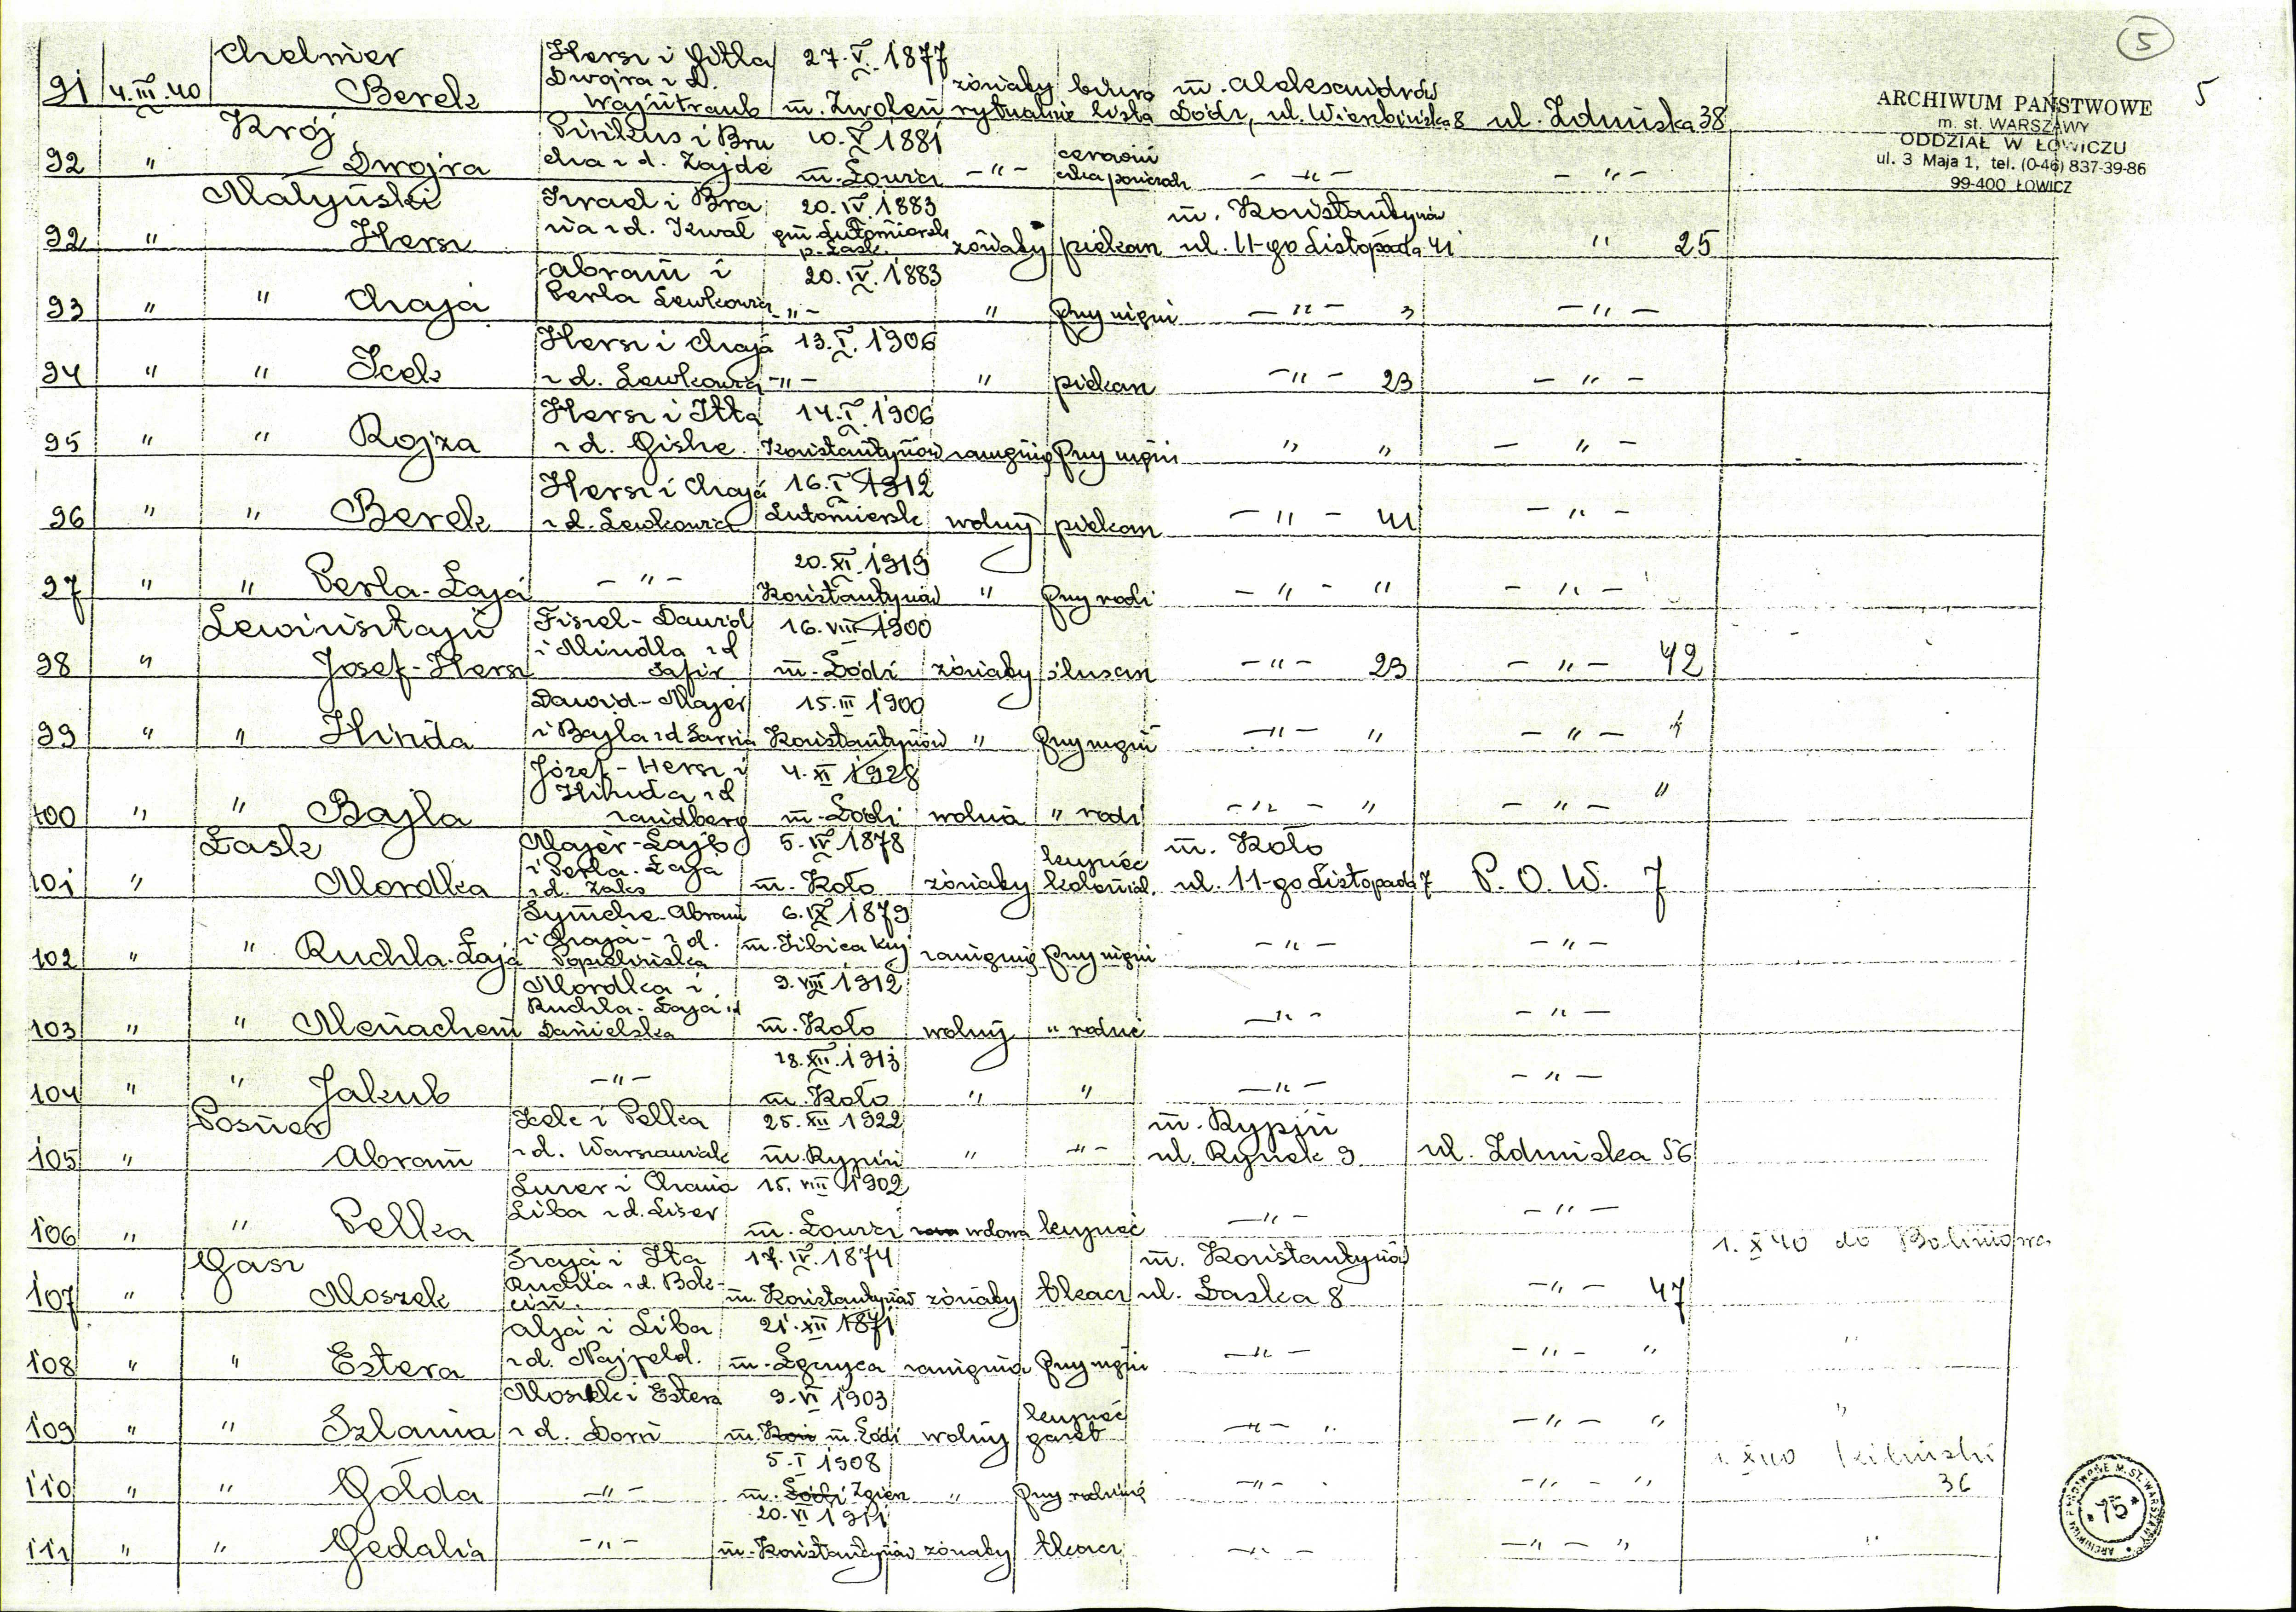 5
5
ARCHIWUM PAŃSTWOWE
m. st. WARSZAWY
ODDZIAŁ W ŁOWICZU
ul. 3 Maja 1, tel. (0-46) 837-39-86
99-400 ŁOWICZ
Chelmer Hersz i Gitla 27.V.1877
91 4.III.40 Berek Dwojra z d. Wajntraub m. Zwoleń żonaty rytualnie biuro lista m. Aleksandrów Łódz, ul. Wierzbińska 8 ul. Zduńska 38
Krój Pinkus i Bru 10.V.1881
92 " Dwojra cha z d. Zajde m. Łowicz -"- -"- -"-
Małyński Izrael i Bra 20.IV.1883 m. Konstantynów
92 " Hersz na z d. Kwał gm. Lutomiersk p. Łask. żonaty piekarz ul. 11-go Listopada 41 " 25
Abram i 20.IV.1883
93 " " Chaja Perla Lewkowicz -"- " przy mężu -"- " -"-
Hersz i Chaja 13.I.1906
94 " " Icek z d. Lewkowicz -"- " piekarz -"- 23 -"-
Hersz i Itta 14.I.1906
95 " " Rojza z d. Gishe Konstantynów zamężna przy mężu " " -"-
Hersz i Chaja 16.I.1912
96 " " Berek z d. Lewkowicz Lutomiersk wolny piekarz -"- 41 -"-
20.XI.1919
97 " " Perla-Łaja -"- Konstantynów " przy rodz -"- " -"-
Lewinsztajn Fiszel-Dawid 16.VIII 1900
98 " Josef-Hersz i Mindla z d Safir m. Łódź żonaty ślusarz -"- 23 -"- 42
Dawid-Majer 15.III 1900
99 " " Hinda i Bajla z d Konstantynów " przy mężu -"- " -"- "
Józef-Hersz i 4.XI 1928
100 " " Bajla Hinda z d zandberg m. Łódź wolna " rodz -"- " -"- "
Łask Majer-Łajb 5.IV 1878 m. Koło
101 " Mordka i Perla-Łaja z d. Zaks m. Koło żonaty kupiec kolonial. ul. 11-go Listopada 7 P.O.W. 7
Symcha-Abram 6.IX 1879
102 " " Ruchla-Łaja i Chaja- z d. Popielińska m. Izbica Kuj zamężna przy mężu -"- -"-
Mordka i 9.VIII 1912
103 " " Menachem Ruchla-Łaja z d Danielska m. Koło wolny " rodzic -"- -"-
18.XII.1913
104 " " Jakub -"- m. Koło " " -"- -"-
Posner Icek i Pelka 25.XII 1922 m. Rypin
105 " Abram z d. Warszawiak m. Rypin " -"- ul. Rynek 9 ul. Zduńska 56
Luzer i Chania 15.VIII 1902
106 " " Pelka Liba z d. Liser m. Łowicz wdowa kupiec -"- -"-
Gasz Szaja i Ita 17.IV.1874 m. Konstantynów 1.X 40 do Bolimowa
107 " Moszek Ruchla z d. Bok- cin. m. Konstantynów żonaty tkacz ul. Łaska 8 -"- 47
Alja i Liba 21.XII 1871
108 " " Estera z d. Najfeld. m. Łęczyca zamężna przy mężu -"- -"- " "
Moszek i Estera 9.VI 1903
109 " " Szlama z d. Dorn m. Kon m. Łódź wolny kupiec gazet -"- " -"- " "
5.I 1908 1.X40 Kiliński
110 " " Gołda -"- m. Łódź Zgierz " przy rodzinie -"- -"- " 36
20.VI 1911
111 " " Gedalia -"- m. Konstantynów żonaty tkacz -"- -"- " "
ARCHIWUM PAŃSTWOWE M. ST. WARSZAWY
* 75 *